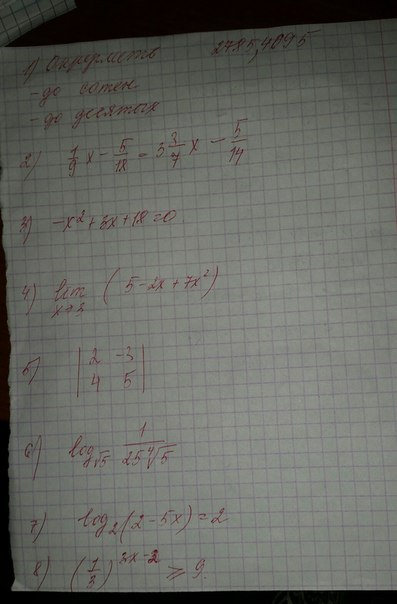 1) Округлить 2785,4095
- до сотен
- до десятых
2) 7/9 x - 5/18 = 3 3/7 x - 5/14
3) -x² + 3x + 18 = 0
4) lim x→3 (5 - 2x + 7x²)
5) |2 -3|
|4 5|
6) log√5 1/(25 ⁴√5)
7) log₂(2 - 5x) = 2
8) (1/3)^(2x-2) ≥ 9.